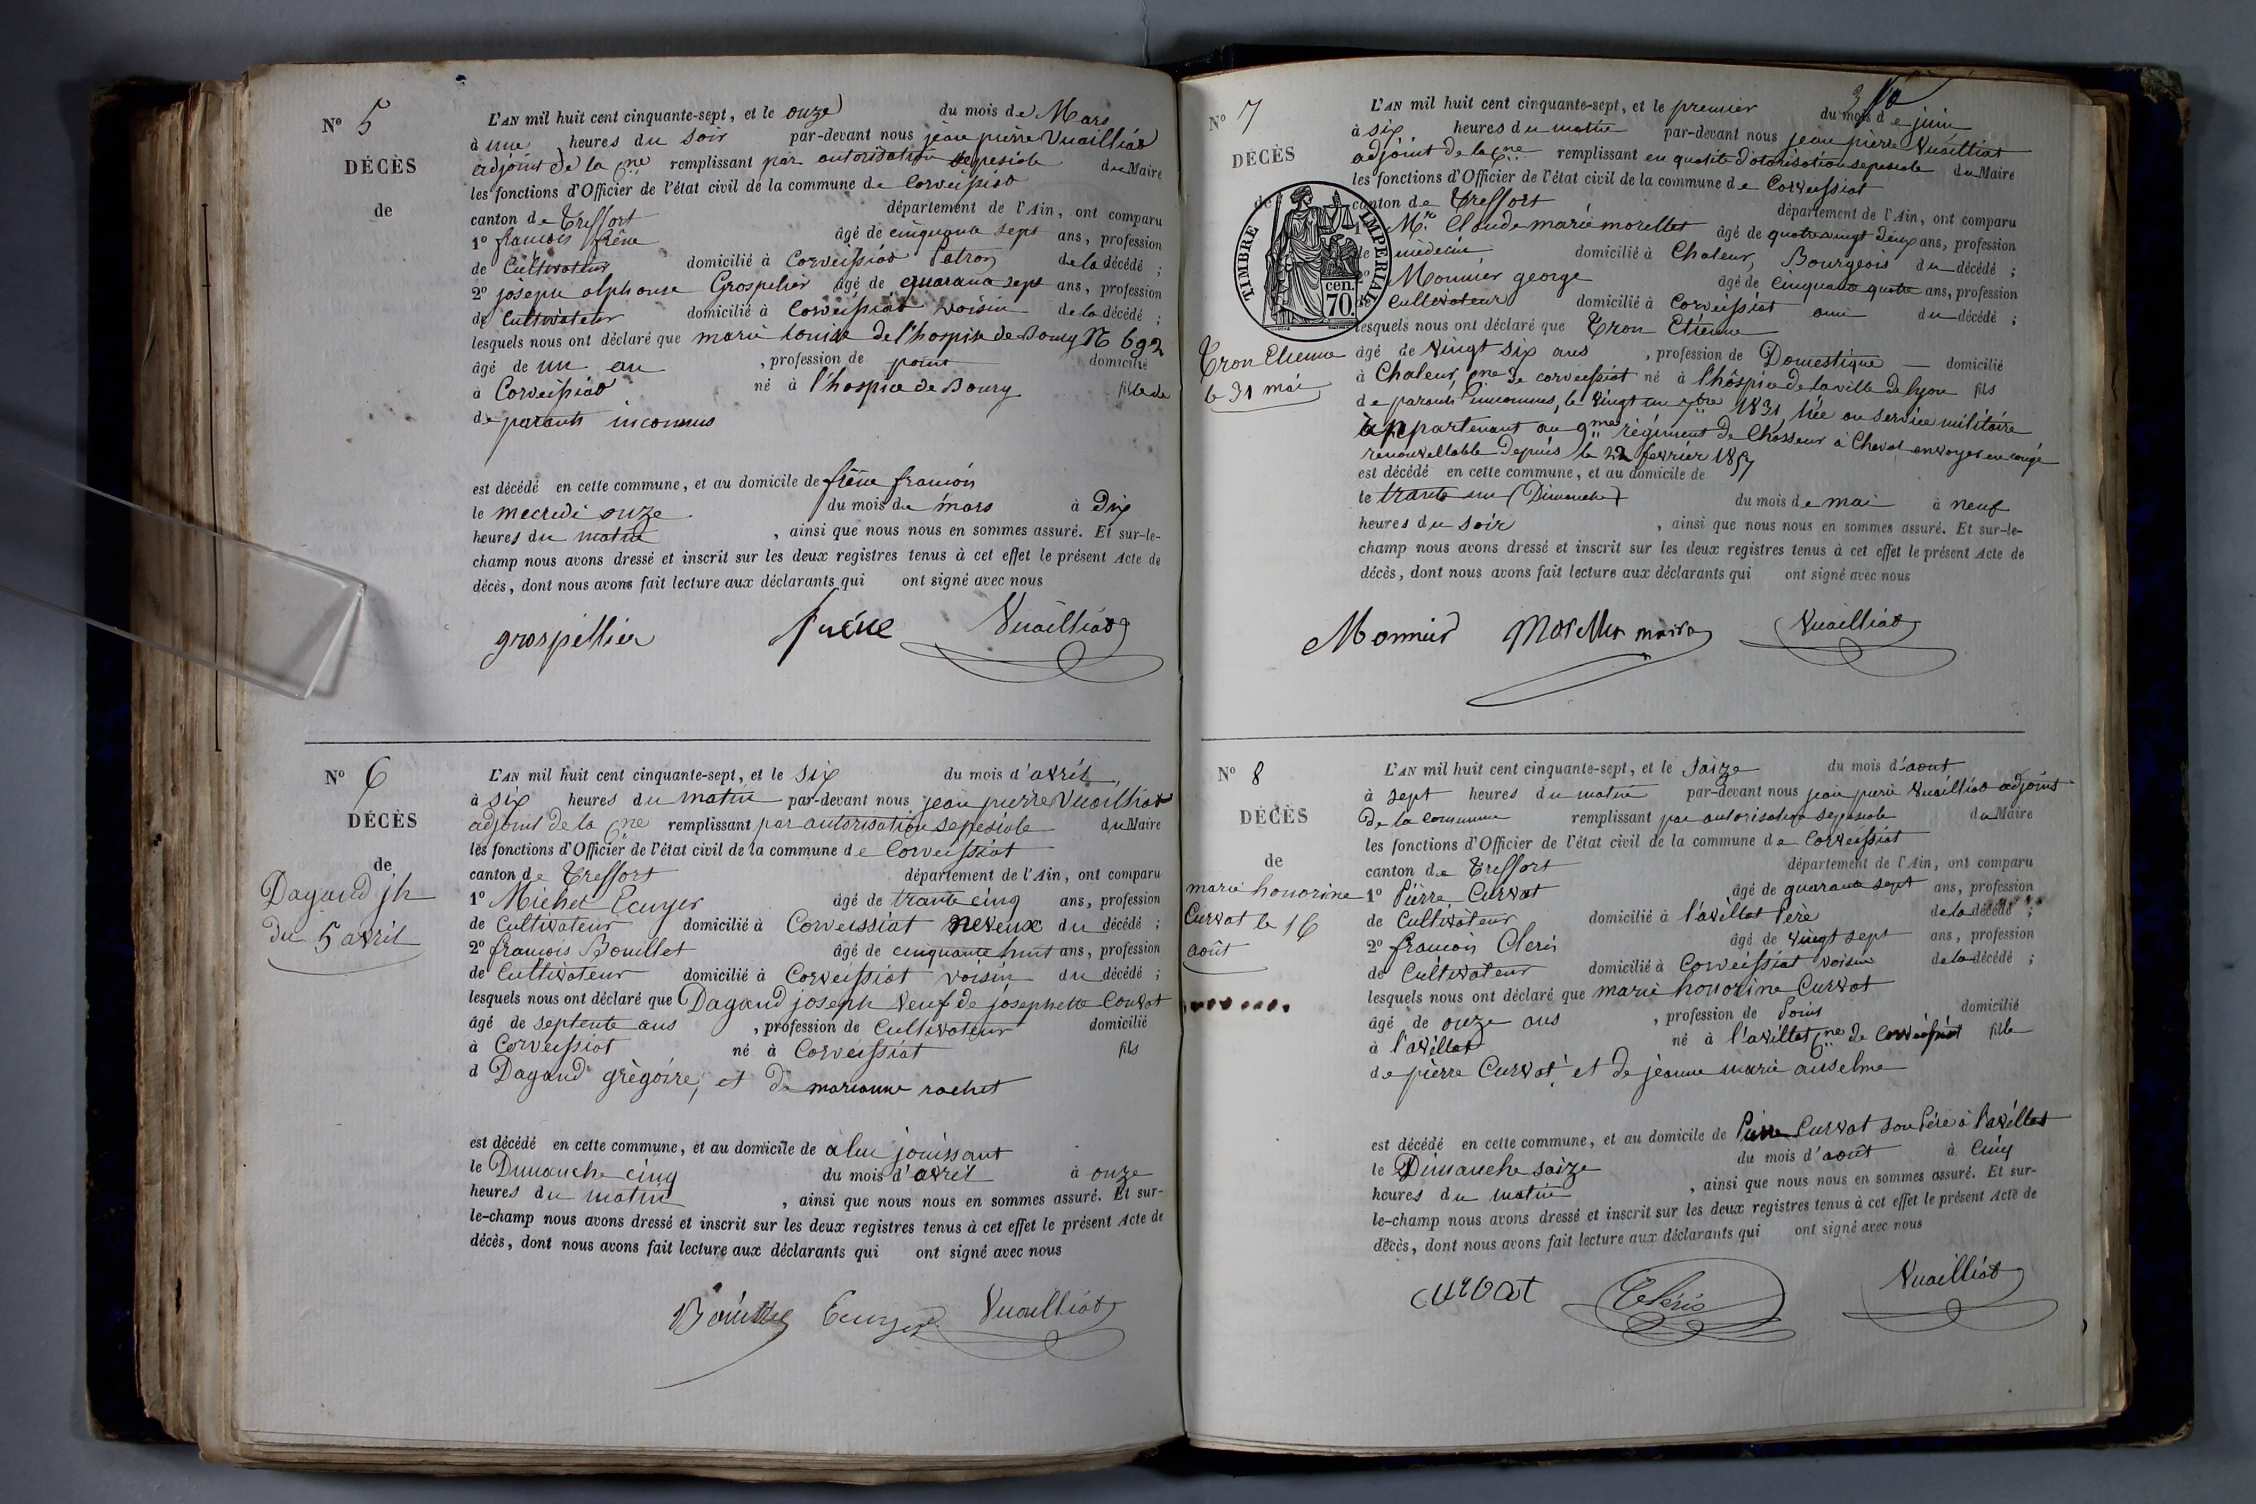 Nº 5
DÉCÈS
de
L'AN mil huit cent cinquante-sept, et le onze du mois de Mars
à une heures du soir par-devant nous jean pierre Vuailliat
adjoint de la Cne remplissant par autorisation sepesiale du Maire
les fonctions d'Officier de l'état civil de la commune de Corveissiat
canton de Treffort département de l'Ain, ont comparu
1º francois frêne âgé de cinquante sept ans, profession
de Cultivateur domicilié à Corveissiat Patron de la décédé ;
2º joseph alphonse Grospelier âgé de quarana sept ans, profession
de Cultivateur domicilié à Corveissiat voisin de la décédé ;
lesquels nous ont déclaré que marie louise de l'hospise de Bourg N 692
âgé de un an , profession de point domicilié
à Corveissiat né à l'hospice de Bourg fille de
de parants inconnus
est décédé en cette commune, et au domicile de frêne francois
le mecredi onze du mois de mars à Dix
heures du matin , ainsi que nous nous en sommes assuré. Et sur-le-
champ nous avons dressé et inscrit sur les deux registres tenus à cet effet le présent Acte de
décès, dont nous avons fait lecture aux déclarants qui ont signé avec nous
grospellier frêne Vuailliat
Nº 6
DÉCÈS
de
Dagand jh
du 5 avril
L'AN mil huit cent cinquante-sept, et le six du mois d'avril
à six heures du matin par-devant nous jean pierre Vuailliat
adjoint de la Cne remplissant par autorisation sepesiale du Maire
les fonctions d'Officier de l'état civil de la commune de Corveissiat
canton de Treffort département de l'Ain, ont comparu
1º Michel Ecuyer âgé de trante cinq ans, profession
de Cultivateur domicilié à Corveissiat neveux du décédé ;
2º francois Bouillet âgé de cinquante huit ans, profession
de Cultivateur domicilié à Corveissiat voisin du décédé ;
lesquels nous ont déclaré que Dagand joseph veuf de josephette Convat
âgé de septente ans , profession de Cultivateur domicilié
à Corveissiat né à Corveissiat fils
d Dagand grègoire, et de marianne rachet
est décédé en cette commune, et au domicile de a lui jouissant
le Dimanche cinq du mois d'avril à onze
heures du matin , ainsi que nous nous en sommes assuré. Et sur-
le-champ nous avons dressé et inscrit sur les deux registres tenus à cet effet le présent Acte de
décès, dont nous avons fait lecture aux déclarants qui ont signé avec nous
Bouillet Ecuyer Vuailliat
Nº 7
DÉCÈS
de
TIMBRE IMPERIAL
70 cen.
Tron Etienne
le 31 mai
L'AN mil huit cent cinquante-sept, et le premier du mois de juin
à six heures du matin par-devant nous jean pierre Vuailliat
adjoint de la Cne remplissant en qualité d'otorisation sepesiale du Maire
les fonctions d'Officier de l'état civil de la commune de Corveissiat
canton de Treffort département de l'Ain, ont comparu
1º Mr. Claude marie morellet âgé de quatrevingt deux ans, profession
de médecin domicilié à Chaleur, Bourgeois du décédé ;
2º Monnier george âgé de cinquana quatre ans, profession
de Cultivateur domicilié à Corveissiat ami du décédé ;
lesquels nous ont déclaré que Tron Etienne
âgé de vingt six ans , profession de Domestique domicilié
à Chaleur Cne de corveissiat né à l'hôspice de la ville de lyon fils
de parants inconnus, le vingt un 1831, liée au service militaire
appartenant au 9me règiment de Chasseur à Cheval envoyer en congé
renouvellable Depuis le 22 fevrier 1857
est décédé en cette commune, et au domicile de
le trante un (Dimanche) du mois de mai à neuf
heures du soir , ainsi que nous nous en sommes assuré. Et sur-le-
champ nous avons dressé et inscrit sur les deux registres tenus à cet effet le présent Acte de
décès, dont nous avons fait lecture aux déclarants qui ont signé avec nous
Monnier Morellet Vuailliat
Nº 8
DÉCÈS
de
marie honorine
Curvat le 16
août
L'AN mil huit cent cinquante-sept, et le saize du mois d'aout
à sept heures du matin par-devant nous jean pierre Vuailliat adjoint
de la commune remplissant par autorisation sepesiale du Maire
les fonctions d'Officier de l'état civil de la commune de Corveissiat
canton de Treffort département de l'Ain, ont comparu
1º Pierre Curvat âgé de quarante sept ans, profession
de Cultivateur domicilié à l'avillat Père de la décédé ;
2º francois Cleris âgé de vingt sept ans, profession
de Cultivateur domicilié à Corveissiat voisin de la décédé ;
lesquels nous ont déclaré que marie honorine Curvat
âgé de onze ans , profession de Point domicilié
à l'avillat né à l'avillat Cne de Corveissiat fille
de pierre Curvat et de jeanne marie anselme
est décédé en cette commune, et au domicile de Pierre Curvat son Pére à l'avillat
le Dimanche saize du mois d'août à Cinq
heures du matin , ainsi que nous nous en sommes assuré. Et sur-
le-champ nous avons dressé et inscrit sur les deux registres tenus à cet effet le présent Acte de
décès, dont nous avons fait lecture aux déclarants qui ont signé avec nous
curvat Cleris Vuailliat